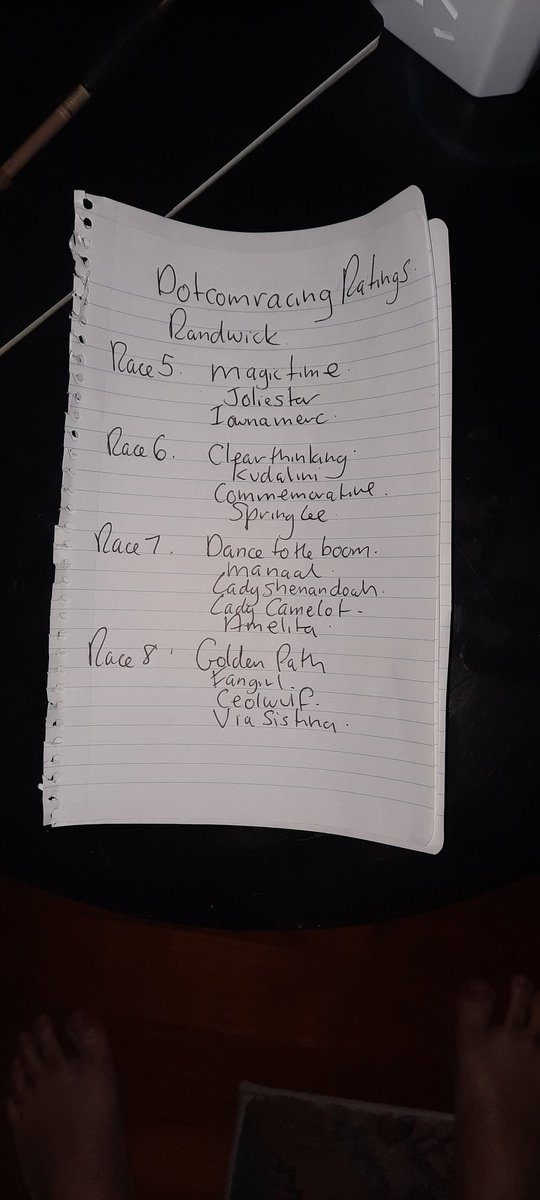 Dotcomracing Ratings.
Randwick.
Race 5. Magic time.
Joliestar
Iownamerc.
Race 6. Clear thinking.
Kudalini
Commemorative.
Spring lee.
Race 7. Dance to the boom.
Manaal.
Lady Shenandoah.
Lady Camelot.
Amelita.
Race 8. Golden Path
Fangirl.
Ceolwulf.
Via Sistina.